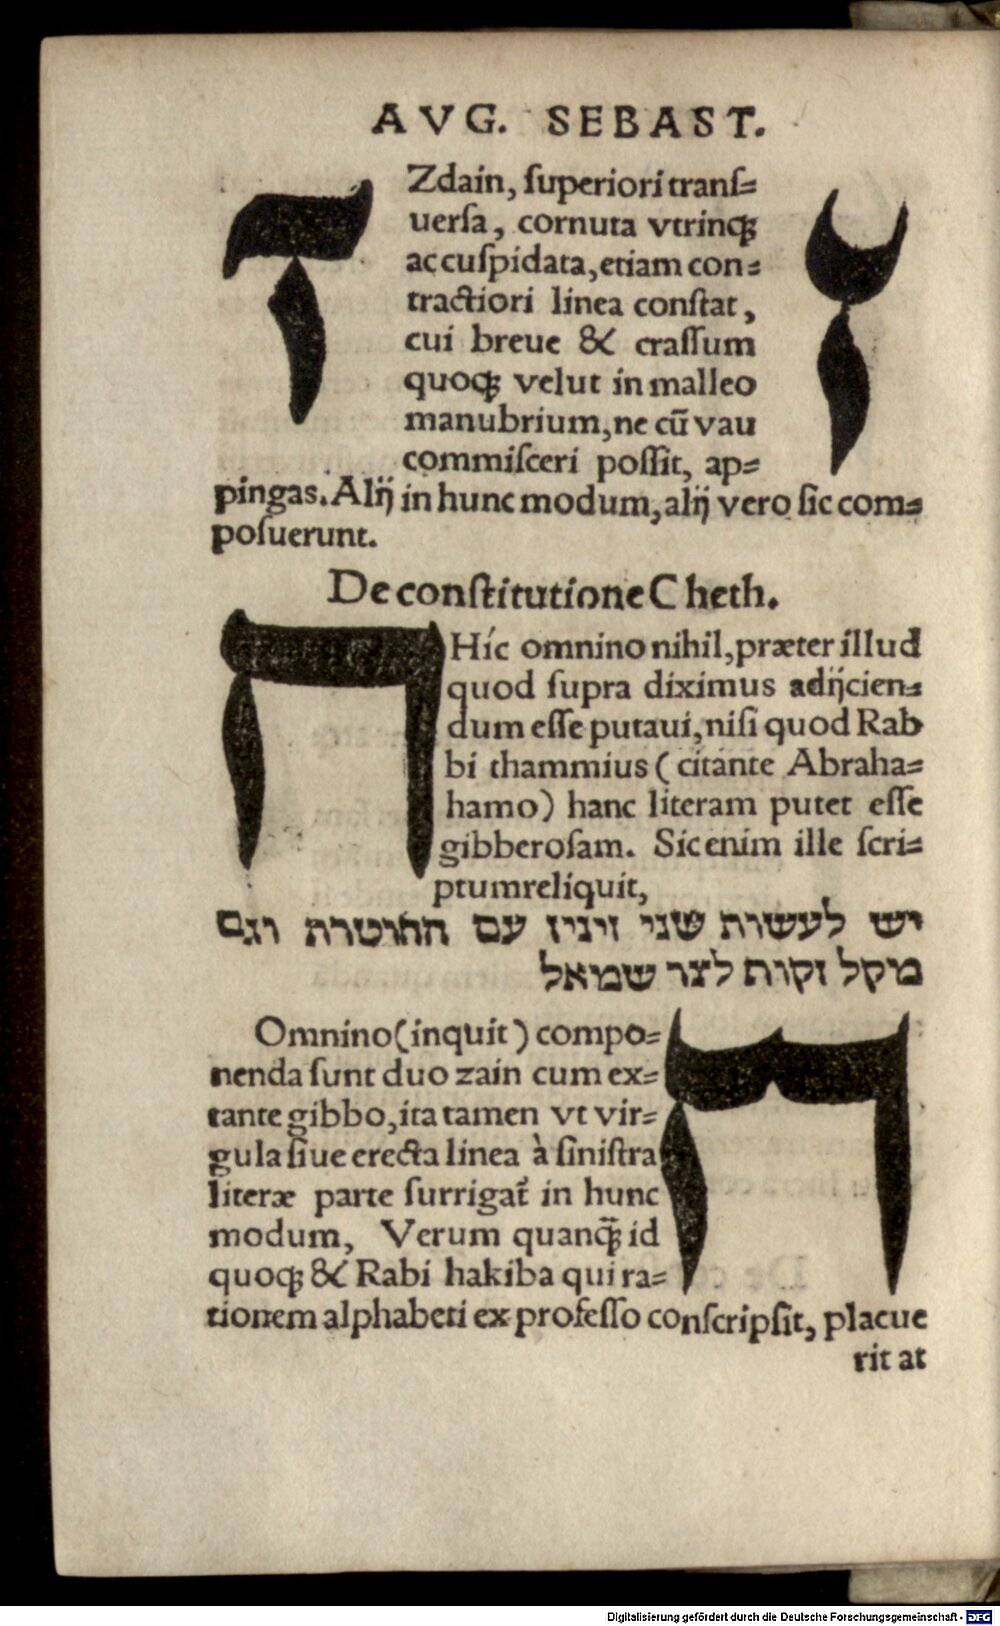 AVG. SEBAST.
Zdain, ſuperiori tranſ⸗
uerſa, cornuta vtrinq́ꝫ
accuſpidata, etiam con⸗
tractiori linea conſtat,
cui breue & craſſum
quoqꝫ velut in malleo
manubrium, ne cū vau
commiſceri poſſit, ap⸗
pingas. Alij in hunc modum, alij vero ſic com⸗
poſuerunt.
De conſtitutione Cheth.
Híc omnino nihil, præter illud
quod ſupra diximus adijcien⸗
dum eſſe putaui, niſi quod Rab
bi thammius (citante Abraha⸗
hamo) hanc literam putet eſſe
gibberoſam. Sic enim ille ſcri⸗
ptum reliquit,
יש לעשות שני זיניז עם החוטרות וגם
מקל זקות לצר שמאל
Omnino (inquit) compo⸗
nenda ſunt duo zain cum ex⸗
tante gibbo, ita tamen vt vir⸗
gula ſiue erecta linea à ſiniſtra
literæ parte ſurrigat᷑ in hunc
modum, Verum quanq̃ꝫ id
quoqꝫ & Rabi hakiba qui ra⸗
tionem alphabeti ex profeſſo conſcripſit, placue
rit at
Digitalisierung gefördert durch die Deutsche Forschungsgemeinschaft - DFG